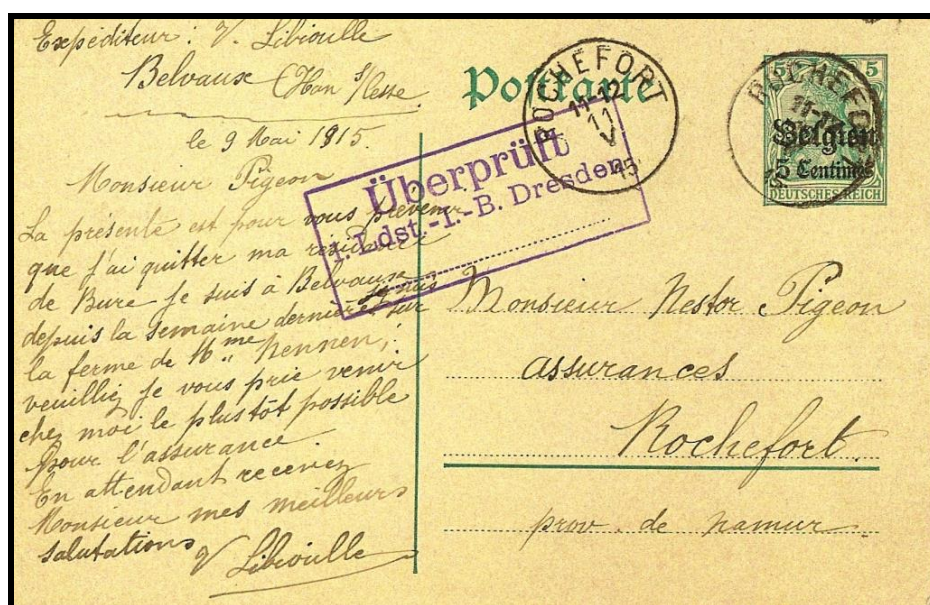 Expéditeur : V. Libioulle
Belvaux (Han s/Lesse
le 9 Mai 1915.
Monsieur Pigeon
La présente est pour vous prévenir
que j'ai quitter ma résidence
de Bure je suis à Belvaux
depuis la semaine dernière sur
la ferme de Mme Hennen,
veuilliez je vous prie venir
chez moi le plus tôt possible
pour l'assurance.
En attendant recevez
Monsieur mes meilleurs
salutations
V Libioulle
Postkarte
ROCHEFORT
11-12
11
V
15
Überprüft
1. Ldst.-I.-B. Dresden
ROCHEFO
11-12
5 5
Belgien
5 Centimes
DEUTSCHES REICH
Monsieur Nestor Pigeon
assurances
Rochefort.
prov. de Namur